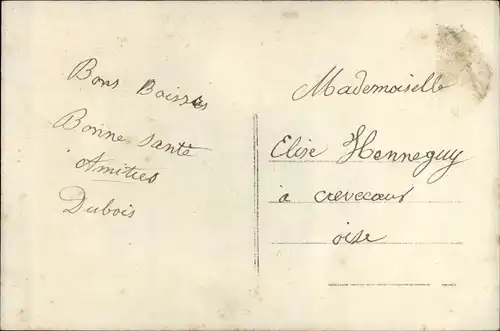 Bons Baisers
Bonne santé
Amitiés
Dubois
Mademoiselle
Elise Henneguy
à crevecœur
oise